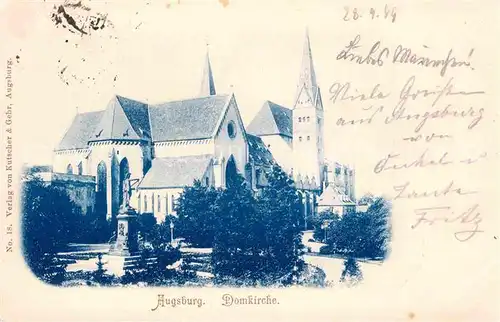 28.9.99
Liebes Mariechen!
Viele Grüße
aus Augsburg
von
Onkel u
Tante
Fritz
No. 18. Verlag von Kutscher & Gehr, Augsburg.
Augsburg. Domkirche.